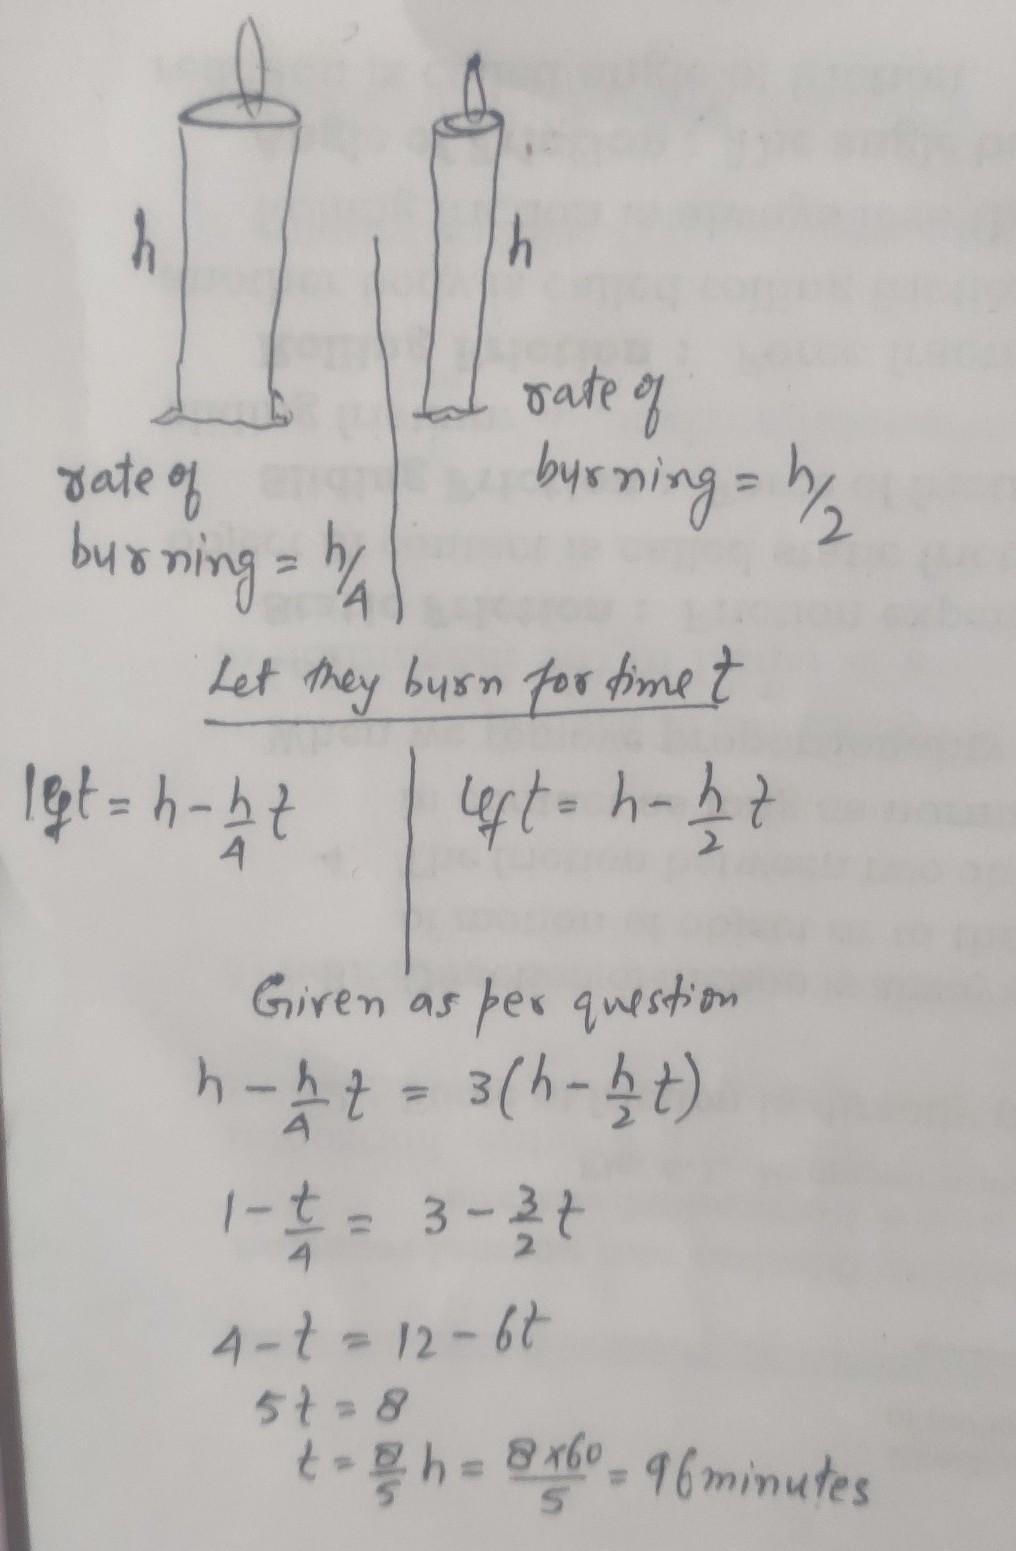 h
h
rate of
burning = h/4
rate of
burning = h/2
Let they burn for time t
left = h - h/4 t
left = h - h/2 t
Given as per question
h - h/4 t = 3(h - h/2 t)
1 - t/4 = 3 - 3/2 t
4 - t = 12 - 6t
5t = 8
t = 8/5 h = 8x60/5 = 96 minutes